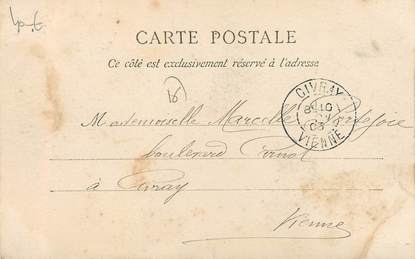 CARTE POSTALE
Ce côté est exclusivement réservé à l'adresse
CIVRAY
VIENNE
Mademoiselle Marcelle
boulevard
à Civray
Vienne